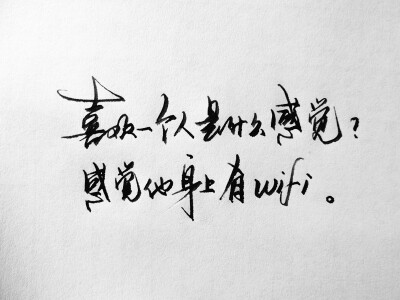 喜欢一个人是什么感觉？
感觉他身上有wifi。